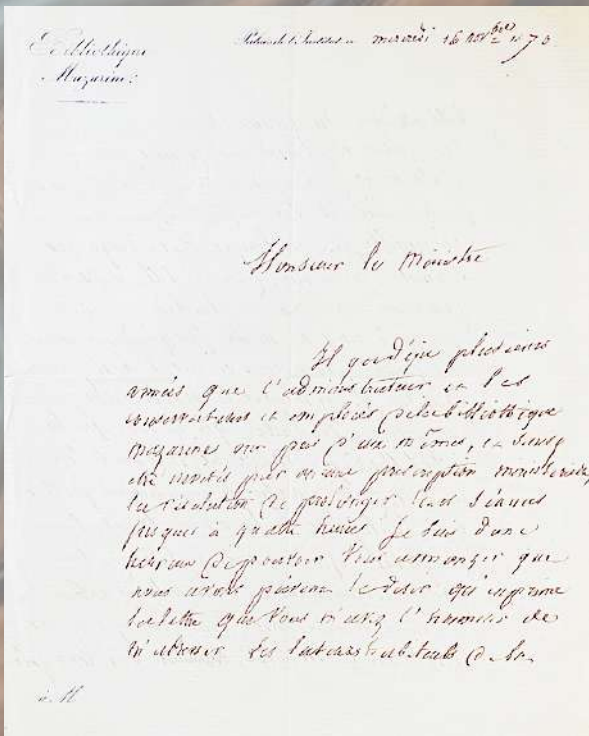 Bibliothèque
Mazarine.
Palais de l'Institut le mercredi 16 nov.bre 1870.
Monsieur le Ministre
Il y a déjà plusieurs
années que l'administrateur et les
conservateurs et employés de la bibliothèque
mazarine ont pris d'eux mêmes, et sans
être invités par aucune prescription ministérielle,
la résolution de prolonger leurs séances
jusques à quatre heures. Je suis donc
heureux de pouvoir vous annoncer que
nous avons prévenu le désir qu'exprime
la lettre que vous m'avez l'honneur de
m'adresser. Les
à M